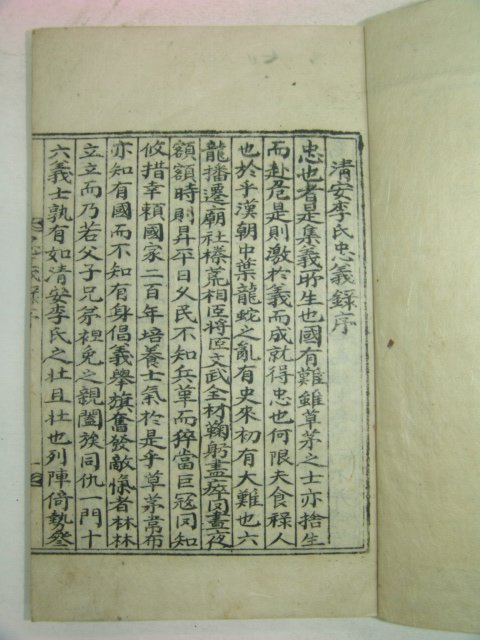 清安李氏忠義錄序
忠也者是集義所生也國有難雖草茅之士亦捨生
而赴危是則激於義而成就得忠也何限夫食祿人
也於乎漢朝中葉龍蛇之亂有史來初有大難也六
龍播遷廟社榛荒相臣將臣文武全材鞠躬盡瘁罔晝夜
額額時則昇平日久民不知兵革而猝當巨寇罔知
攸措幸賴國家二百年培養士氣於是乎草茅韋布
亦知有國而不知有身倡義擧旗奮發敵愾者林林
立立而乃若父子兄弟袒免之親闔族同仇一門十
六義士孰有如淸安李氏之壯且壯也列陣倚埶